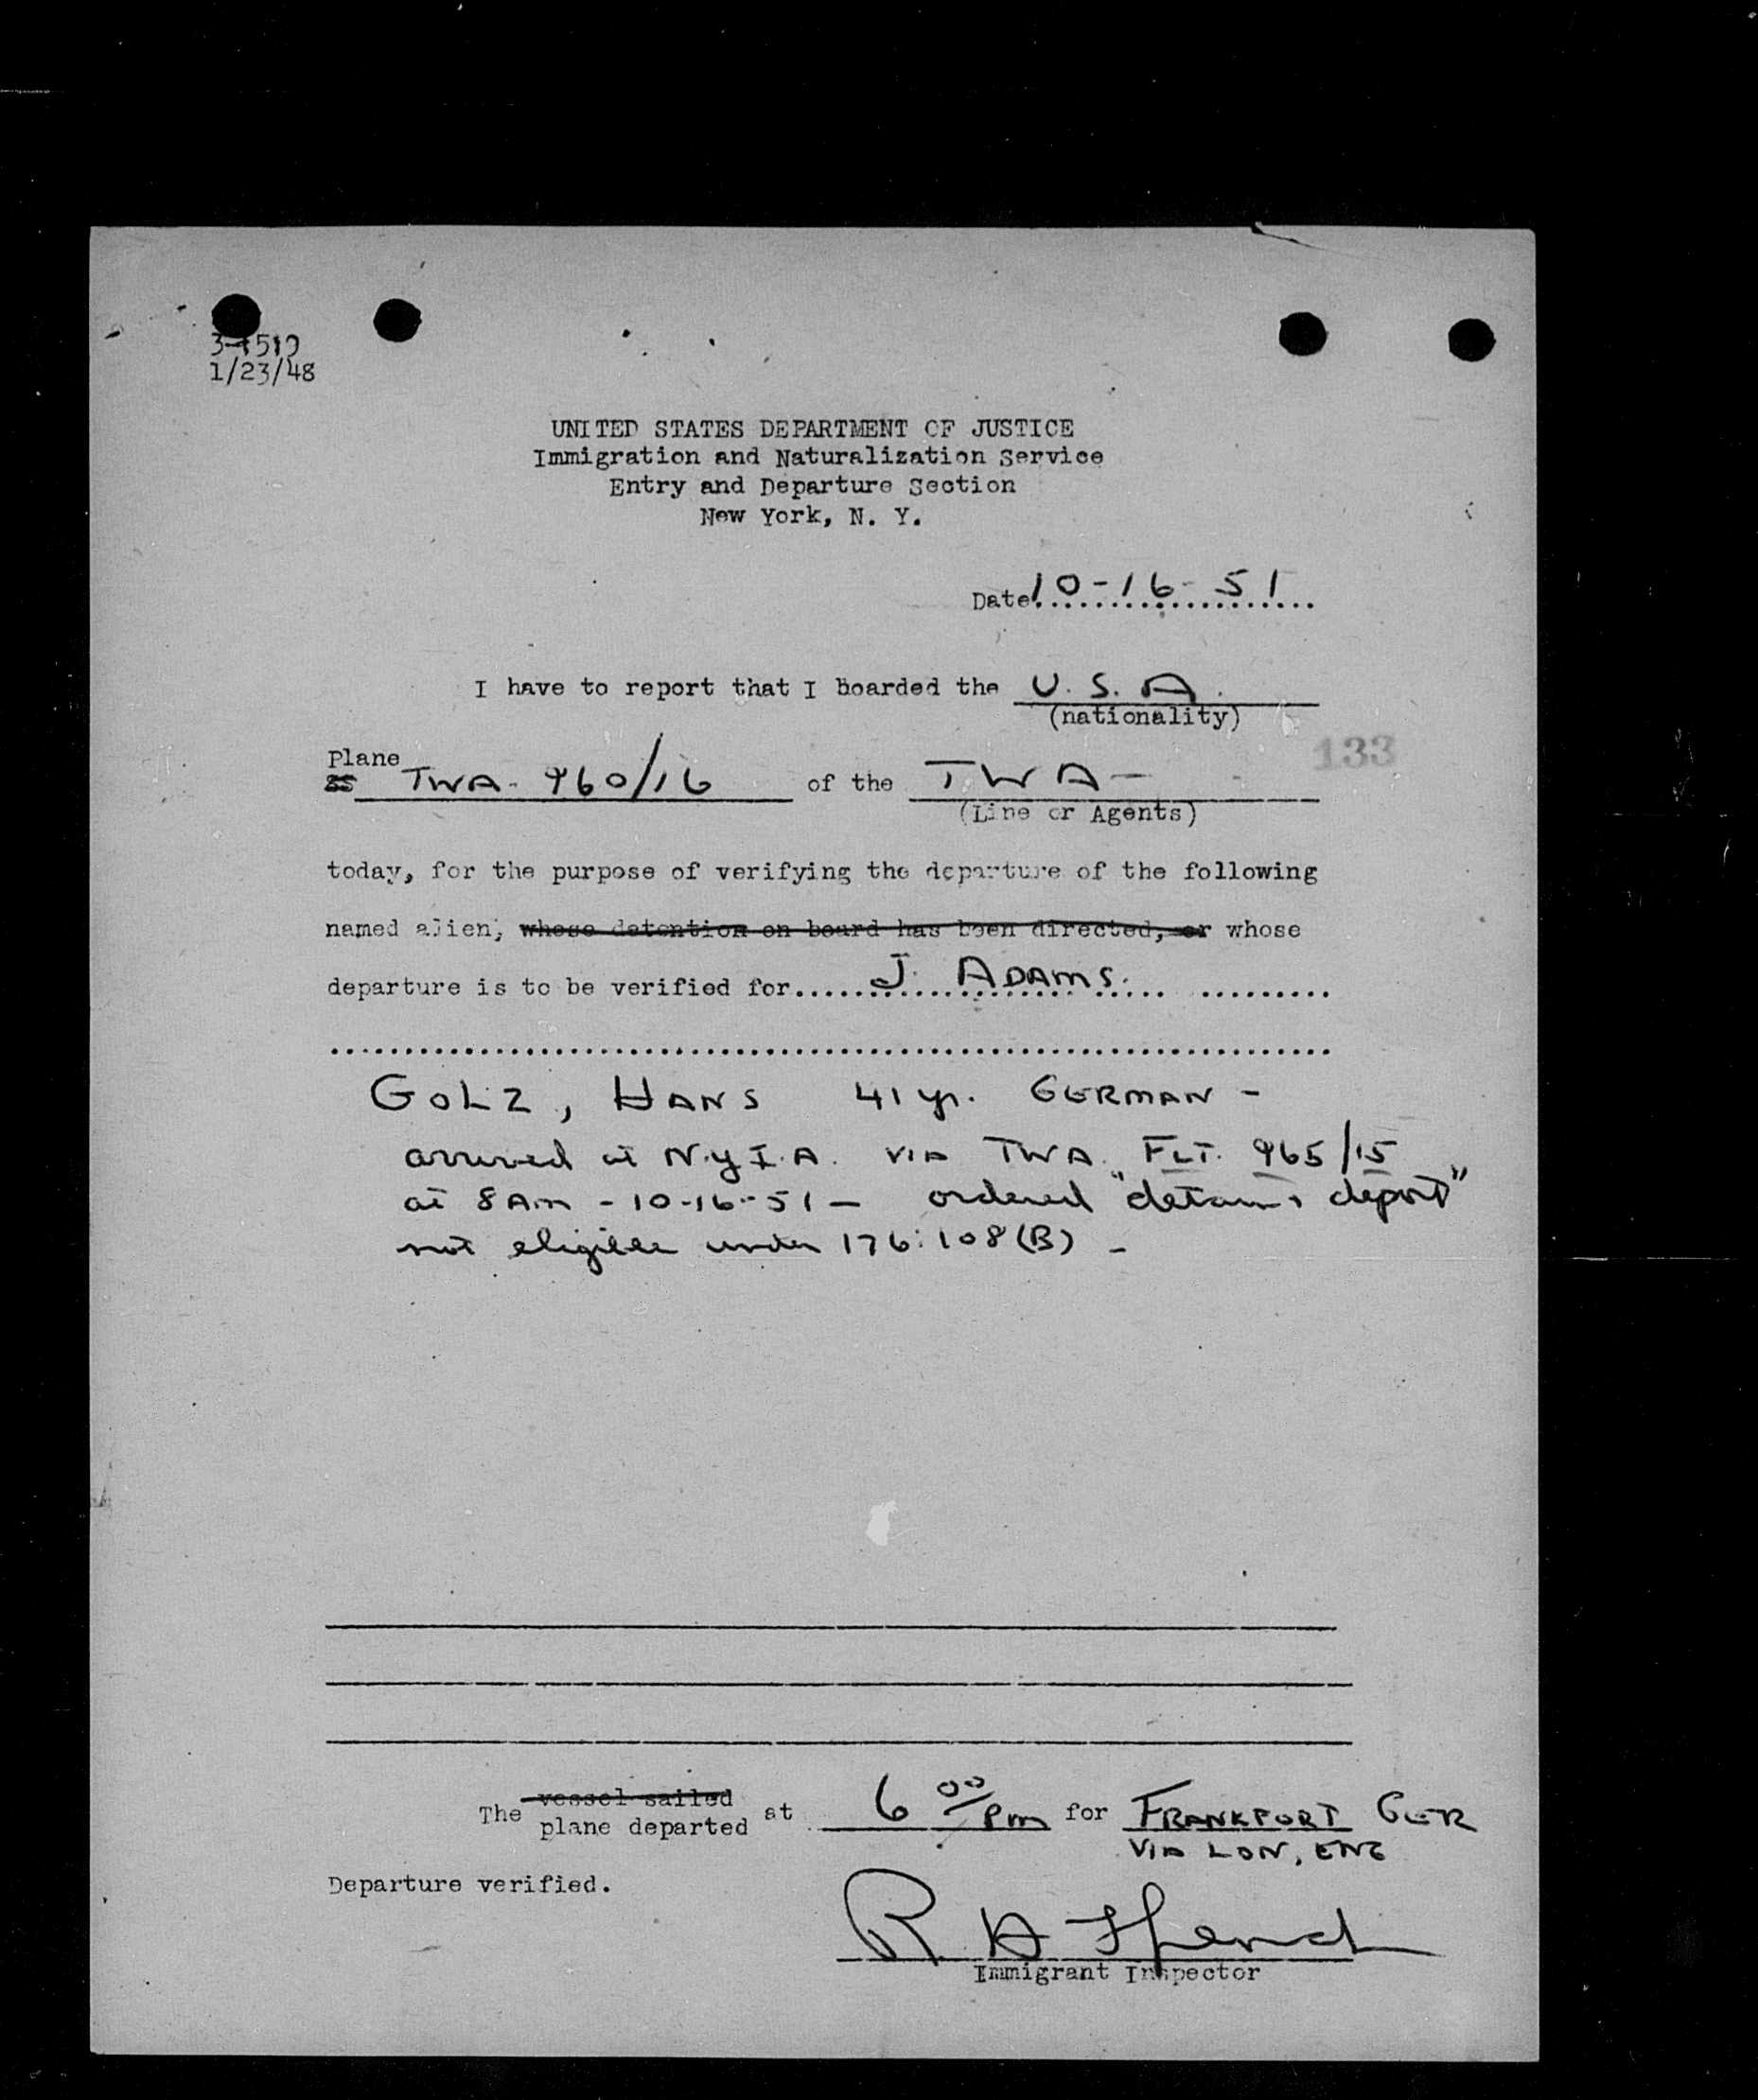 1/23/48
UNITED STATES DEPARTMENT OF JUSTICE
Immigration and Naturalization Service
Entry and Departure Section
New York, N. Y.
Date 10-16-51
I have to report that I boarded the U. S. A.
(nationality)
133
Plane
SS TWA - 960/16 of the TWA -
(Line or Agents)
today, for the purpose of verifying the departure of the following
named alien, whose detention on board has been directed, or whose
departure is to be verified for J. ADAMS.
GOLZ, HANS 41 yr. GERMAN -
arrived at N.Y.I.A. VIA TWA FLT. 965/15
at 8 Am - 10-16-51 - ordered "detain & deport"
not eligible under 176:108(B) -
The vessel sailed at 6 00/Pm for FRANKFORT GER
plane departed
VIA LON, ENG
Departure verified.
R A
Immigrant Inspector